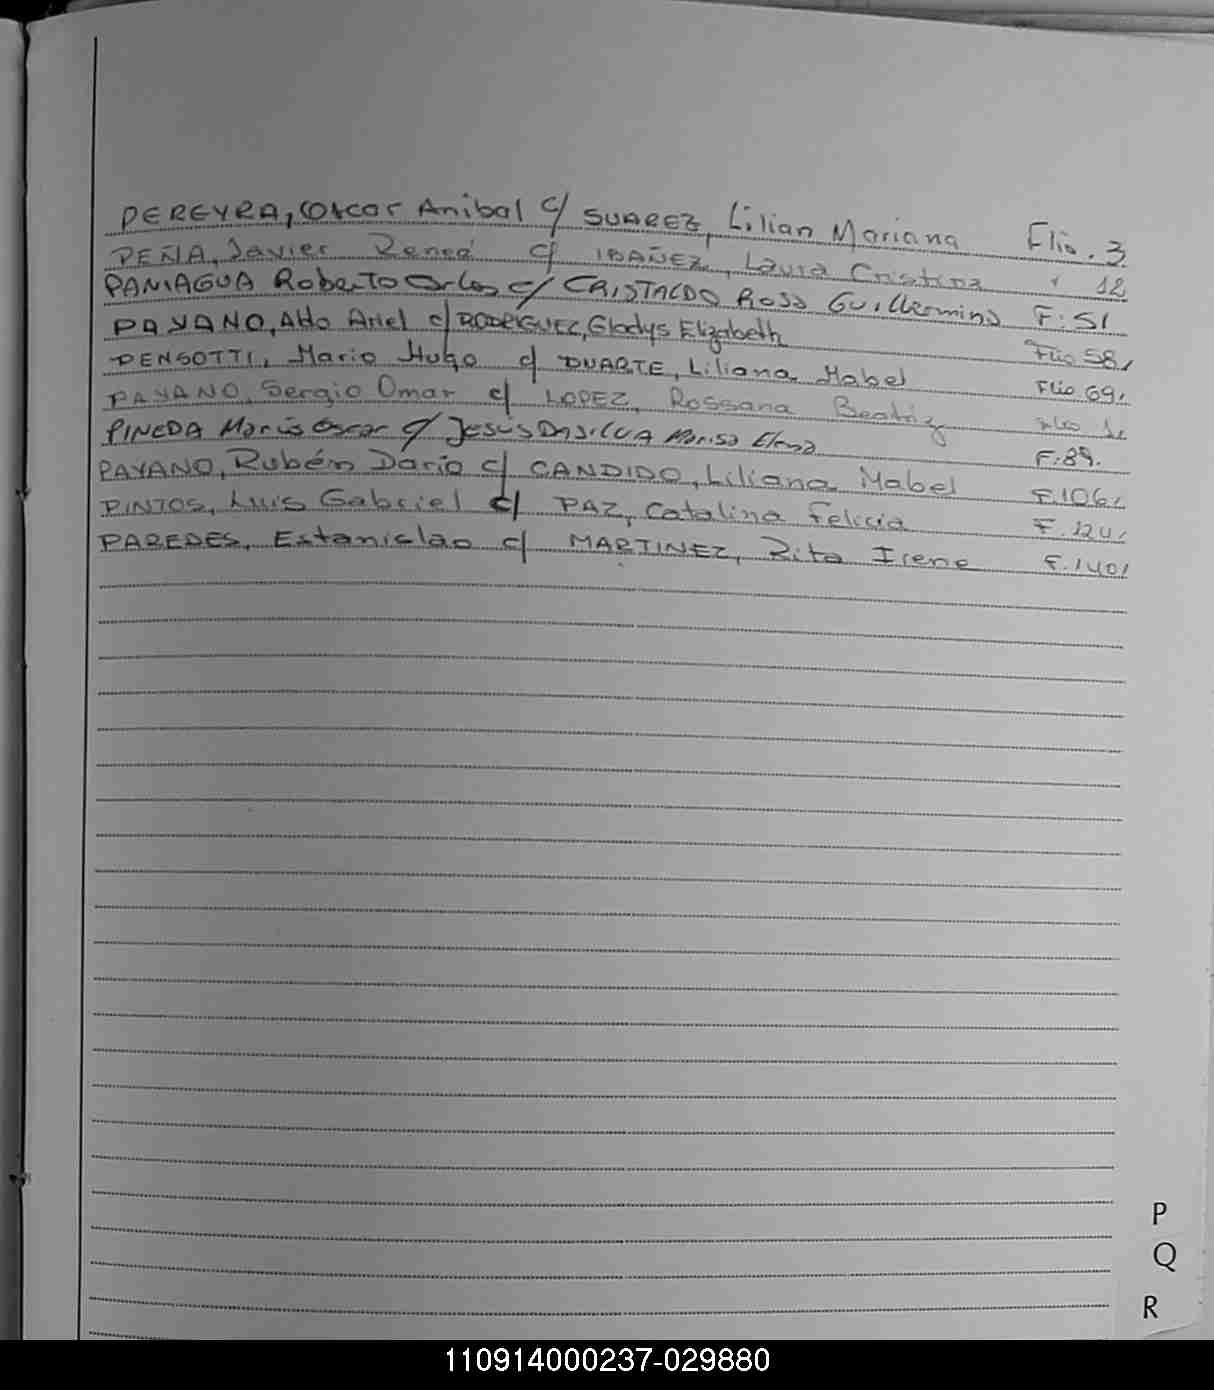 PEREYRA, Oscar Anibal c/ SUAREZ, Lilian Mariana Flio. 3
PEÑA, Javier Reneé c/ IBAÑEZ, Laura Cristina " 12
PANIAGUA Roberto Carlos c/ CRISTALDO Rosa Guillermina F: 51
PAYANO, Aldo Ariel c/ RODRIGUEZ, Gladys Elizabeth Flio 58,
PENSOTTI, Mario Hugo c/ DUARTE, Liliana Mabel Flio 69,
PAYANO, Sergio Omar c/ LOPEZ, Rossana Beatriz
PINEDA Mario Oscar c/ JESUS DASILVA Marisa Elena F.89.
PAYANO, Rubén Dario c/ CANDIDO, Liliana Mabel F.106,
PINTOS, Luis Gabriel c/ PAZ, Catalina Felicia F.124,
PAREDES, Estanislao c/ MARTINEZ, Rita Irene F.140,
P
Q
R
110914000237-029880